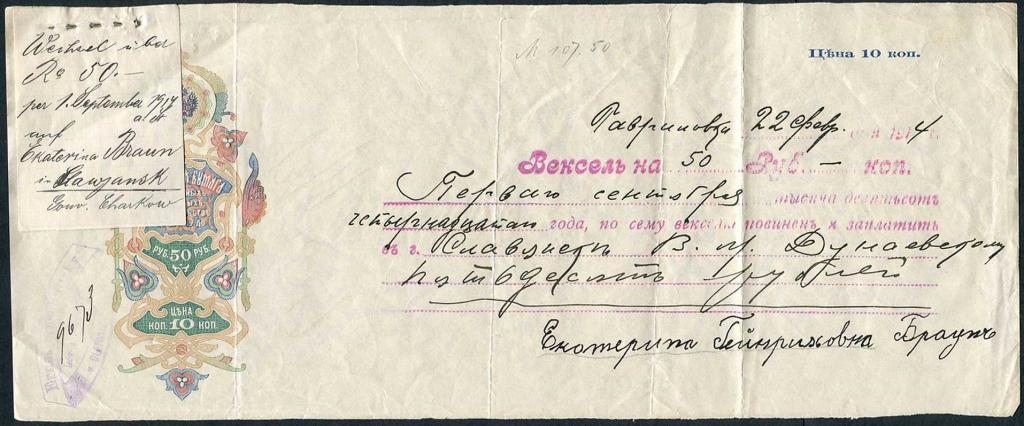 Wechsel über
Ro 50.-
per 1. September 1914
a. St
auf
Ekaterina Braun
in Slawjansk
Gouv. Charkow
M 107.50
Цѣна 10 коп.
Гавриловка 22 Февр. 1914 г.
Вексель на 50 Руб. — коп.
Перваго сентября тысяча девятьсотъ
четырнадцатаго года, по сему векселю повиненъ я заплатить
въ г. Славянскъ В. М. Дунаевскому
пятьдесятъ рублей
Екатерина Гейнриховна Браунъ
БУМАГА
РУБ. 50 РУБ.
ЦѢНА
КОП. 10 КОП.
9673